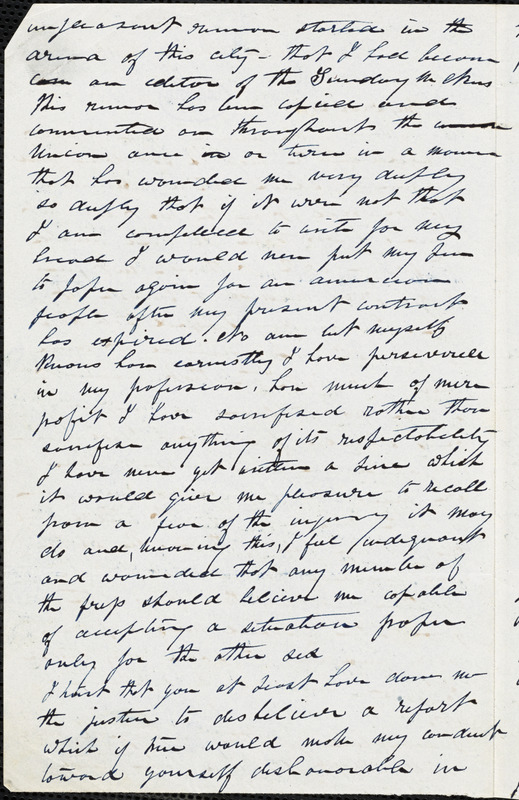 unpleasant rumor started in the
arena of this city - that I had become
an editor of the Sunday
This rumor has been copied and
commented on throughout the
Union over in or twice in a manner
that has wounded me very deeply
so deeply that if it were not that
I am compelled to write for my
bread I would never put my pen
to paper again for an american
people after my present contract
has expired. No one but myself
knows how earnestly I have persevered
in my profession, how much of mere
profit I have sacrificed rather than
sacrifise anything of its respectability
I have never yet written a line which
it would give me pleasure to recall
from a fear of the injury it may
do and, knowing this, I feel indignant
and wounded that any member of
the press should believe me capable
of accepting a situation proper
only for the other sex
I trust that you at least have done me
the justice to disbeliever a report
which if true would make my conduct
toward yourself dishonorable in